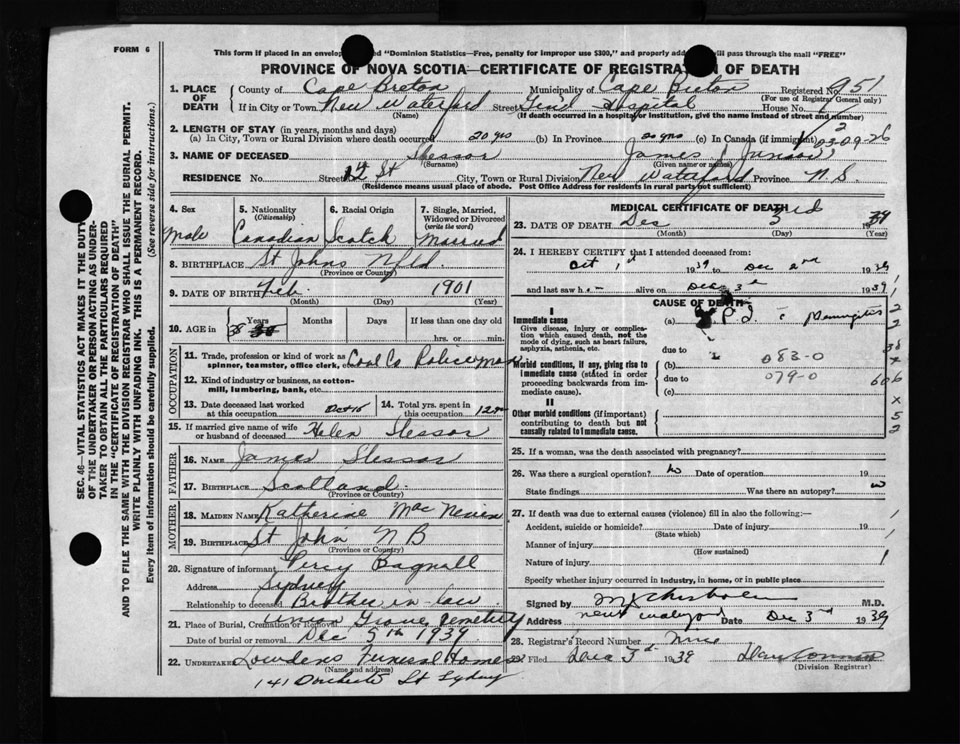 FORM 6
This form if placed in an envelop "Dominion Statistics—Free, penalty for improper use $300," and properly add will pass through the mail "FREE"
PROVINCE OF NOVA SCOTIA—CERTIFICATE OF REGISTRATION OF DEATH
1. PLACE OF DEATH
County of Cape Breton Municipality of Cape Breton Registered No. 951
(For use of Registrar General only)
If in City or Town New Waterford Street Genl Hospital House No.
(Name) (If death occurred in a hospital or institution, give the name instead of street and number)
2. LENGTH OF STAY (in years, months and days)
(a) In City, Town or Rural Division where death occurred 20 yrs (b) In Province 20 yrs (c) In Canada (if immigrant)
3. NAME OF DECEASED Slessor James
(Surname) (Given name or names)
RESIDENCE No. Street St City, Town or Rural Division New Waterford Province N.S.
(Residence means usual place of abode. Post Office Address for residents in rural parts not sufficient)
4. Sex Male
5. Nationality (Citizenship) Canadian
6. Racial Origin Scotch
7. Single, Married, Widowed or Divorced (write the word) Married
8. BIRTHPLACE St Johns Nfld
(Province or Country)
9. DATE OF BIRTH Feb. 1901
(Month) (Day) (Year)
10. AGE in Years Months Days If less than one day
hrs. or min.
OCCUPATION
11. Trade, profession or kind of work as spinner, teamster, office clerk, etc. Coal Co Policeman
12. Kind of industry or business, as cotton-mill, lumbering, bank, etc.
13. Date deceased last worked at this occupation Oct
14. Total yrs. spent in this occupation 12
15. If married give name of wife or husband of deceased Helen Slessor
FATHER
16. NAME James Slessor
17. BIRTHPLACE Scotland
(Province or Country)
MOTHER
18. MAIDEN NAME Katherine Mac Neven
19. BIRTHPLACE St John N B
(Province or Country)
20. Signature of informant Percy Bagnall
Address Sydney
Relationship to deceased Brother in law
21. Place of Burial, Cremation or Removal Grove Cemetery
Date of burial or removal Dec 5th 1939
22. UNDERTAKER Lowdens Funeral Home
(Name and address)
141 Dorchester St Sydney
MEDICAL CERTIFICATE OF DEATH
23. DATE OF DEATH Dec 3rd 1939
(Month) (Day) (Year)
24. I HEREBY CERTIFY that I attended deceased from:
Oct 1st 1939 to Dec 2nd 1939
and last saw h alive on Dec 3d 1939
CAUSE OF DEATH
I
Immediate cause
Give disease, injury or complication which caused death, not the mode of dying, such as heart failure, asphyxia, asthenia, etc.
(a)
due to
Morbid conditions, if any, giving rise to immediate cause (stated in order proceeding backwards from immediate cause).
(b) 083-0
due to 079-0
(c)
II
Other morbid conditions (if important) contributing to death but not causally related to immediate cause.
25. If a woman, was the death associated with pregnancy?
26. Was there a surgical operation? Date of operation 19
State findings Was there an autopsy?
27. If death was due to external causes (violence) fill in also the following:—
Accident, suicide or homicide? Date of injury 19
(State which)
Manner of injury
(How sustained)
Nature of injury
Specify whether injury occurred in industry, in home, or in public place
Signed by M.D.
Address New Waterford Date Dec 3rd 1939
28. Registrar's Record Number
Filed Dec 3d 1939
(Division Registrar)
SEC. 46—VITAL STATISTICS ACT MAKES IT THE DUTY
OF THE UNDERTAKER OR PERSON ACTING AS UNDER-
TAKER TO OBTAIN ALL THE PARTICULARS REQUIRED
IN THE "CERTIFICATE OF REGISTRATION OF DEATH"
AND TO FILE THE SAME WITH THE DIVISION REGISTRAR WHO SHALL ISSUE THE BURIAL PERMIT.
WRITE PLAINLY WITH UNFADING INK. THIS IS A PERMANENT RECORD.
Every item of information should be carefully supplied. (See reverse side for instructions.)